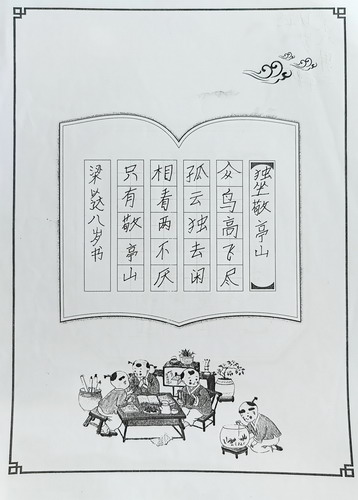 独坐敬亭山
众鸟高飞尽
孤云独去闲
相看两不厌
只有敬亭山
梁 八岁书